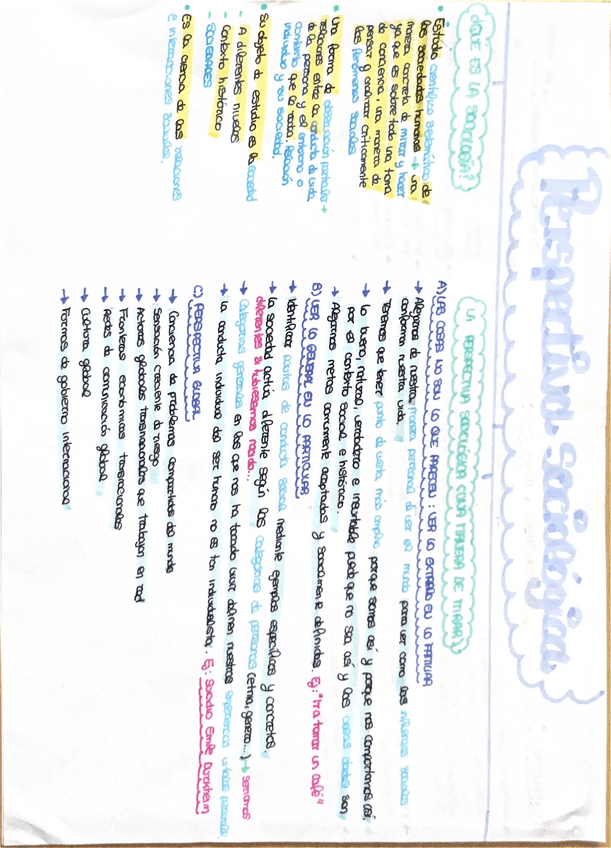 Perspectiva Sociológica
¿QUE ES LA SOCIOLOGIA?
• Estudio científico sistemático de
las sociedades humanas → una
manera concreta de mirar y hacer
ya que es sobre todo una toma
de conciencia, una manera de
pensar y analizar críticamente
los fenómenos sociales
• Una forma de observación particular →
relaciones entre la conducta de vida
de la persona y el entorno o
contexto que le rodea. Relación
individuo y su sociedad.
• Su objeto de estudio es la sociedad
- A diferentes niveles
- Contexto histórico
- SOCIEDADES
• Es la ciencia de las relaciones
e interacciones sociales.
LA PERSPECTIVA SOCIOLÓGICA COMO MANERA DE MIRAR
A) LAS COSAS NO SON LO QUE PARECEN: VER LO EXTRAÑO EN LO FAMILIAR
→ Alejarnos de nuestra manera personal de ver el mundo para ver como las influencias sociales
conforman nuestra vida.
→ Tenemos que tener punto de vista más amplio porque somos así y porque nos comportamos así.
→ Lo bueno, natural, verdadero e inevitable puede que no sea así y las cosas dadas son
por el contexto social e histórico.
→ Algunas metas comunmente aceptadas y socialmente definidas. Ej: "Ir a tomar un café"
B) VER LO GENERAL EN LO PARTICULAR
→ Identificar pautas de conducta social mediante ejemplos específicos y concretos.
→ La sociedad actua diferente según las categorias de personas (etnia, genero...) → seriamos
diferentes si hubiesemos nacido...
→ Categorias generales en las que nos ha tocado vivir definen nuestras experiencias vitales personales.
→ La conducta individual del ser humano no es tan individualista. Ej: Suicidio Emile Durckheim
C) PERSPECTIVA GLOBAL
→ Conciencia de problemas compartidos del mundo
→ Sensación creciente de riesgo
→ Actores globales transnacionales que trabajan en red
→ Fronteras económicas transnacionales
→ Redes de comunicación global
→ Cultura global
→ Formas de gobierno internacional